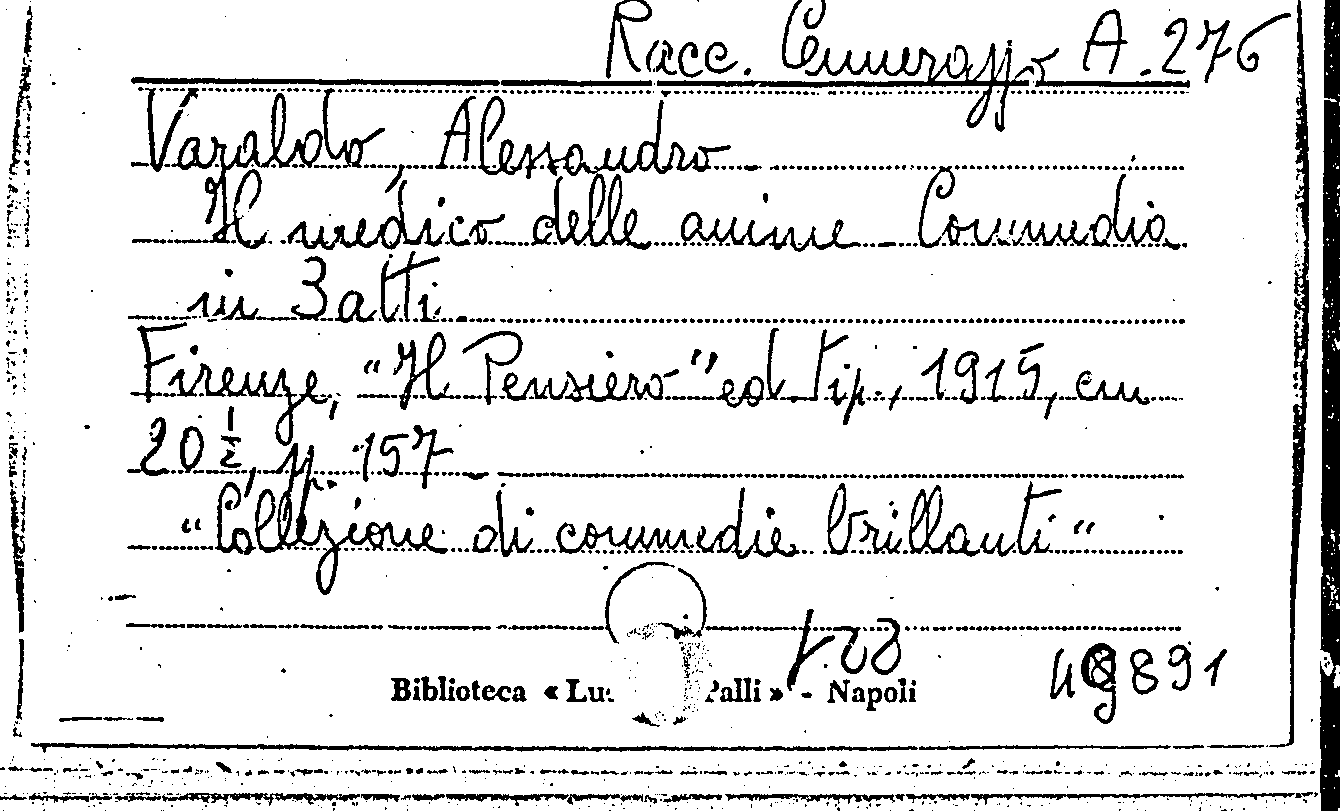 Racc. Cennerazzo A.276
Varaldo, Alessandro
Il medico delle anime - Commedia
in 3 atti.
Firenze, "Il Pensiero" ed. tip., 1915, cm
20 ½, p. 157
"Collezione di commedie brillanti"
Biblioteca « Lu Palli » - Napoli